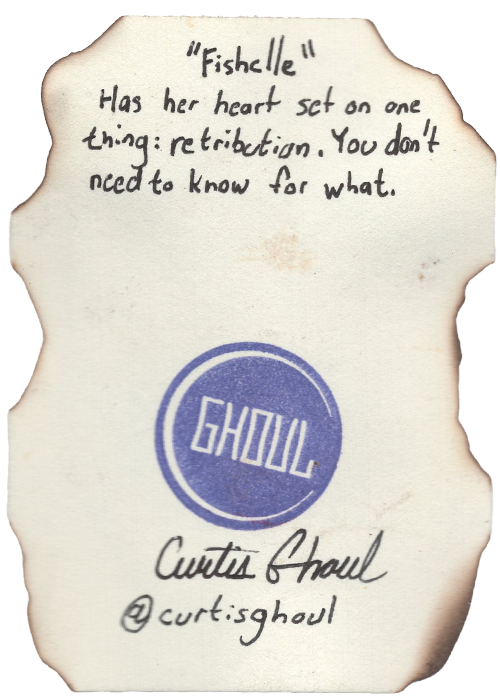 "Fishelle"
Has her heart set on one
thing: retribution. You don't
need to know for what.
GHOUL
Curtis Ghoul
@curtisghoul